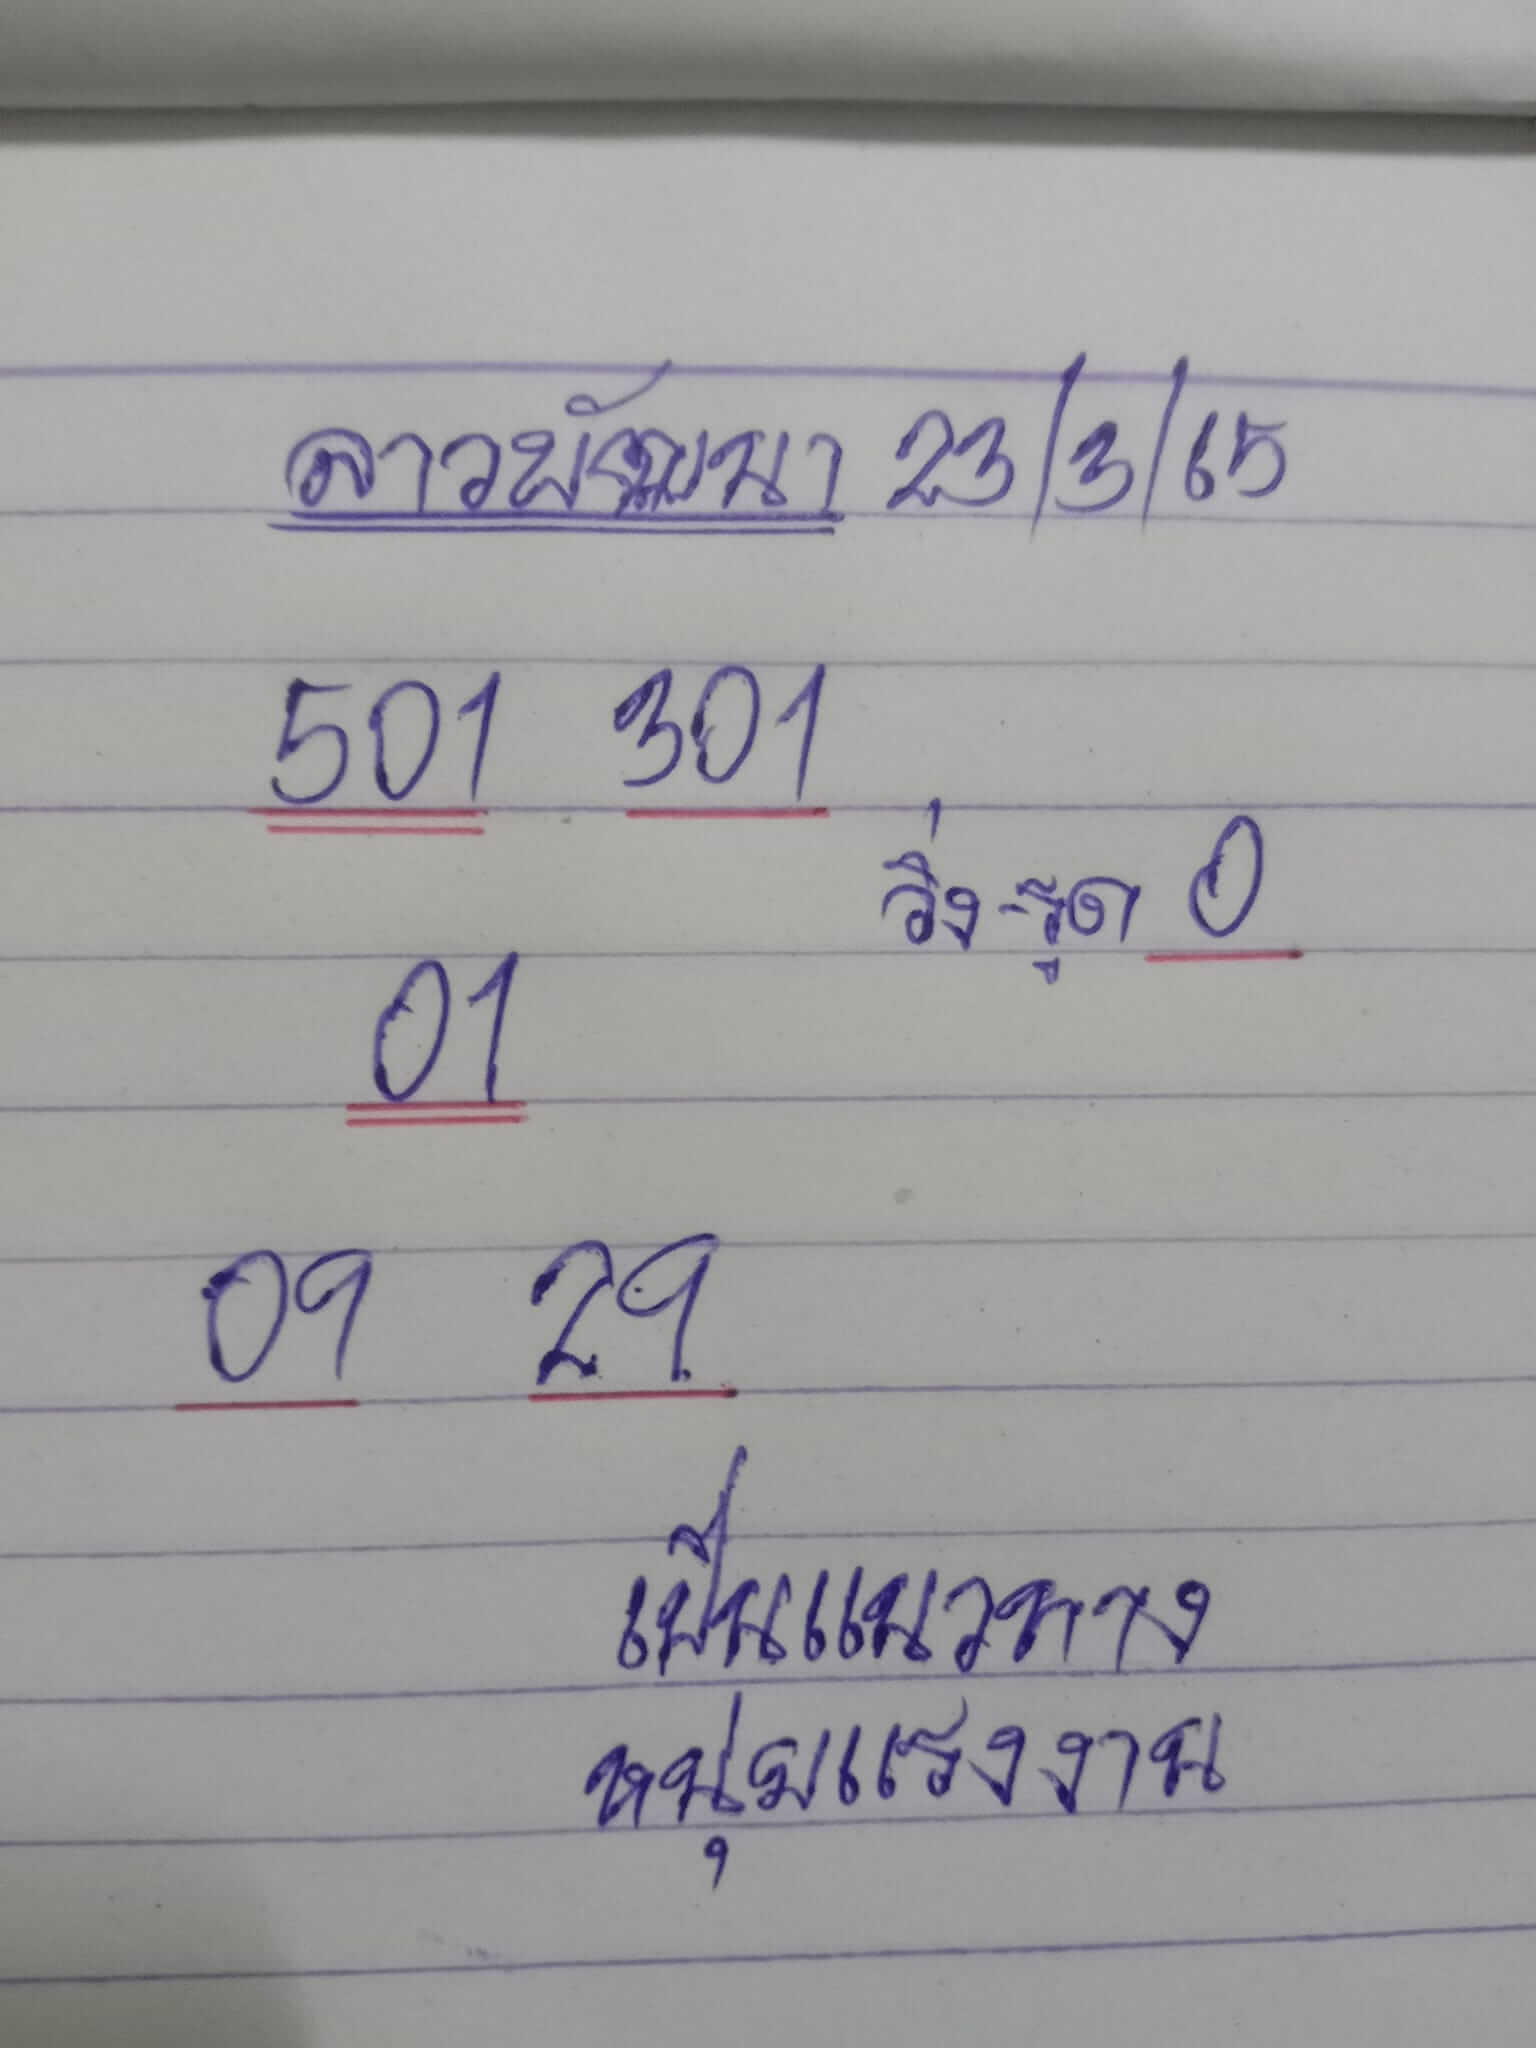 ลาวพัฒนา 23/3/65
501 301
วิ่ง-รูด 0
01
09 29
เป็นแนวทาง
หนุ่มแรงงาน